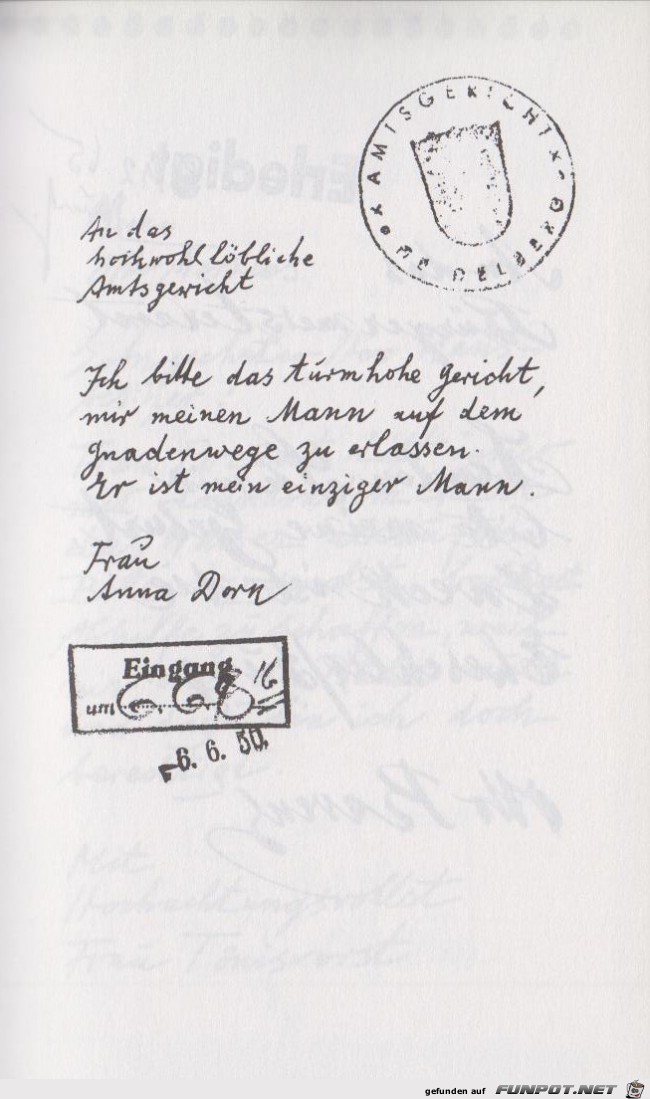 AMTSGERICHT
An das
hochwohl löbliche
Amtsgericht
Ich bitte das turmhohe Gericht,
mir meinen Mann auf dem
Gnadenwege zu erlassen.
Er ist mein einziger Mann.
Frau
Anna Dorn
Eingang
um
6. 6. 50.
gefunden auf FUNPOT.NET